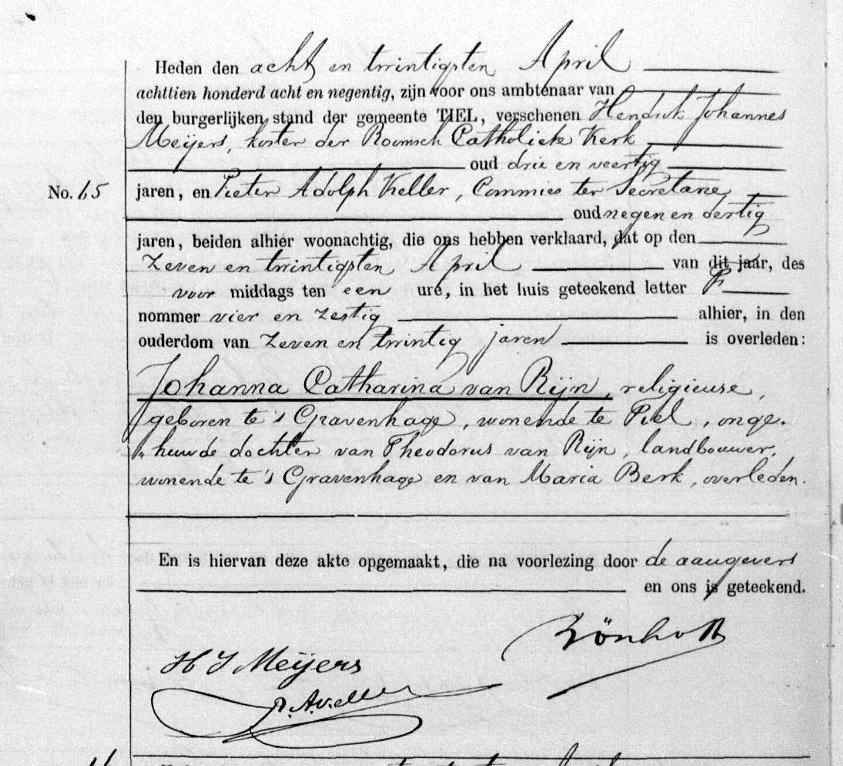 Heden den acht en twintigsten April
achttien honderd acht en negentig, zijn voor ons ambtenaar van
den burgerlijken stand der gemeente TIEL, verschenen Hendrik Johannes
Meijers, koster der Roomsch Catholieke Kerk
oud drie en veertig
No. 65 jaren, en Pieter Adolph Keller, Commies ter Secretarie,
oud negen en dertig
jaren, beiden alhier woonachtig, die ons hebben verklaard, dat op den
Zeven en twintigsten April van dit jaar, des
voor middags ten een ure, in het huis geteekend letter
nommer vier en zestig alhier, in den
ouderdom van Zeven en twintig jaren is overleden:
Johanna Catharina van Rijn, religieuse,
geboren te 's Gravenhage, wonende te Tiel, onge-
huwde dochter van Theodorus van Rijn, landbouwer,
wonende te 's Gravenhage en van Maria Berk, overleden.
En is hiervan deze akte opgemaakt, die na voorlezing door de aangevers
en ons is geteekend.
H J Meijers